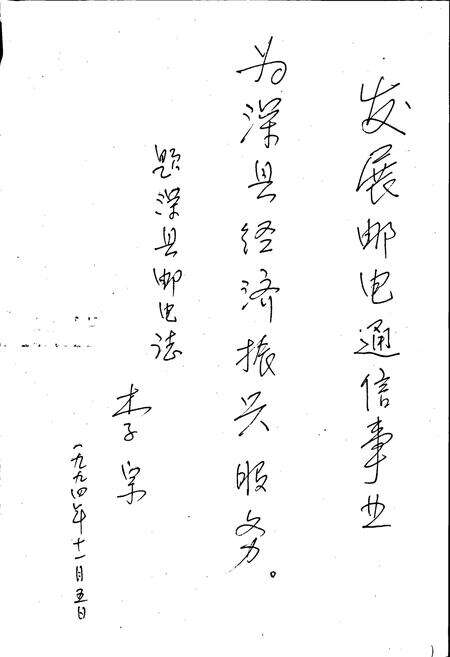 发展邮电通信事业
为深县经济振兴服务。
题深县邮电志
李泉
一九九四年十一月五日